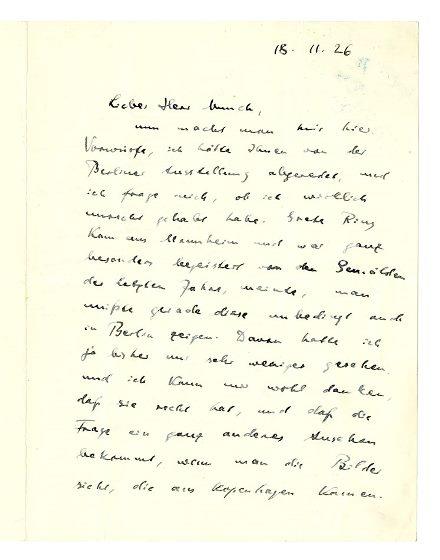 18. 11. 26
Lieber Herr Munch,
nun macht man mir hier
Vorwürfe, ich hätte Ihnen von der
Berliner Ausstellung abgeredet, und
ich frage mich, ob ich wirklich
unrecht gehabt habe. Grete Ring
kam aus Mannheim und war ganz
besonders begeistert von den Gemälden
der letzten Jahre, meinte, man
müsse gerade diese unbedingt auch
in Berlin zeigen. Davon hatte ich
ja bisher nur sehr weniges gesehen,
und ich kann mir wohl denken,
daß sie recht hat, und daß die
Frage ein ganz anderes Ansehen
bekommt, wenn man die Bilder
sieht, die aus Kopenhagen kamen.